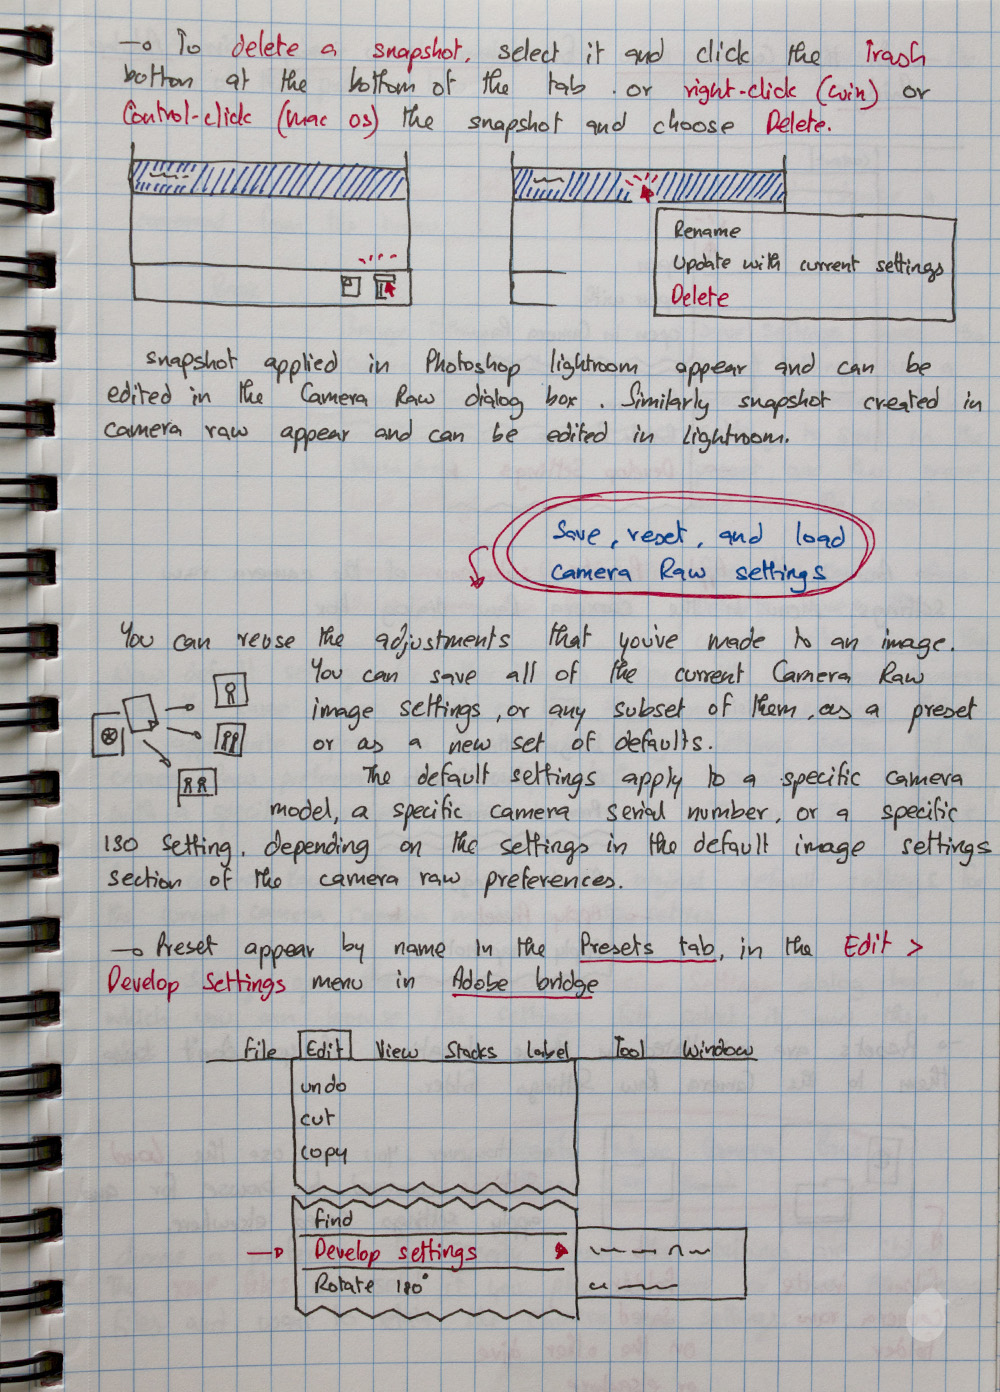 → To delete a snapshot, select it and click the Trash
botton at the bottom of the tab. or right-click (win) or
Control-click (mac os) the snapshot and choose Delete.
Rename
Update with current settings
Delete
snapshot applied in Photoshop lightroom appear and can be
edited in the Camera Raw dialog box. Similarly snapshot created in
camera raw appear and can be edited in lightroom.
Save, reset, and load
camera Raw settings
You can reuse the adjustments that you've made to an image.
You can save all of the current Camera Raw
image settings, or any subset of them, as a preset
or as a new set of defaults.
The default settings apply to a specific camera
model, a specific camera serial number, or a specific
ISO setting. depending on the settings in the default image settings
section of the camera raw preferences.
→ Preset appear by name In the Presets tab, in the Edit >
Develop Settings menu in Adobe bridge
File Edit View Stacks Label Tool Window
undo
cut
copy
find
→ Develop settings
Rotate 180°